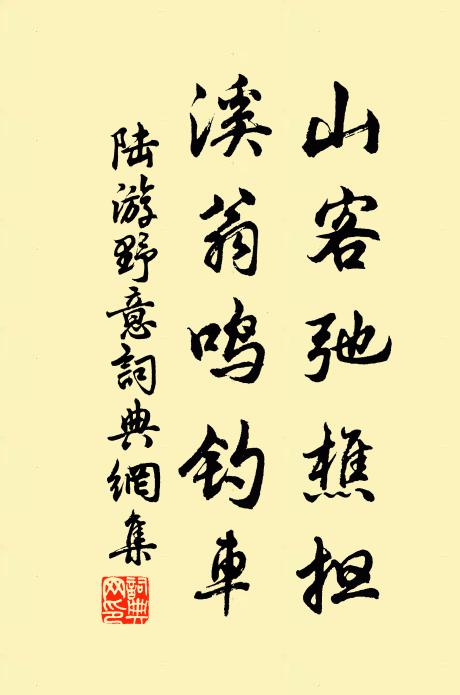 山客弛樵担
溪翁鸣钓車
陆游野意詞典網集
詞典网印